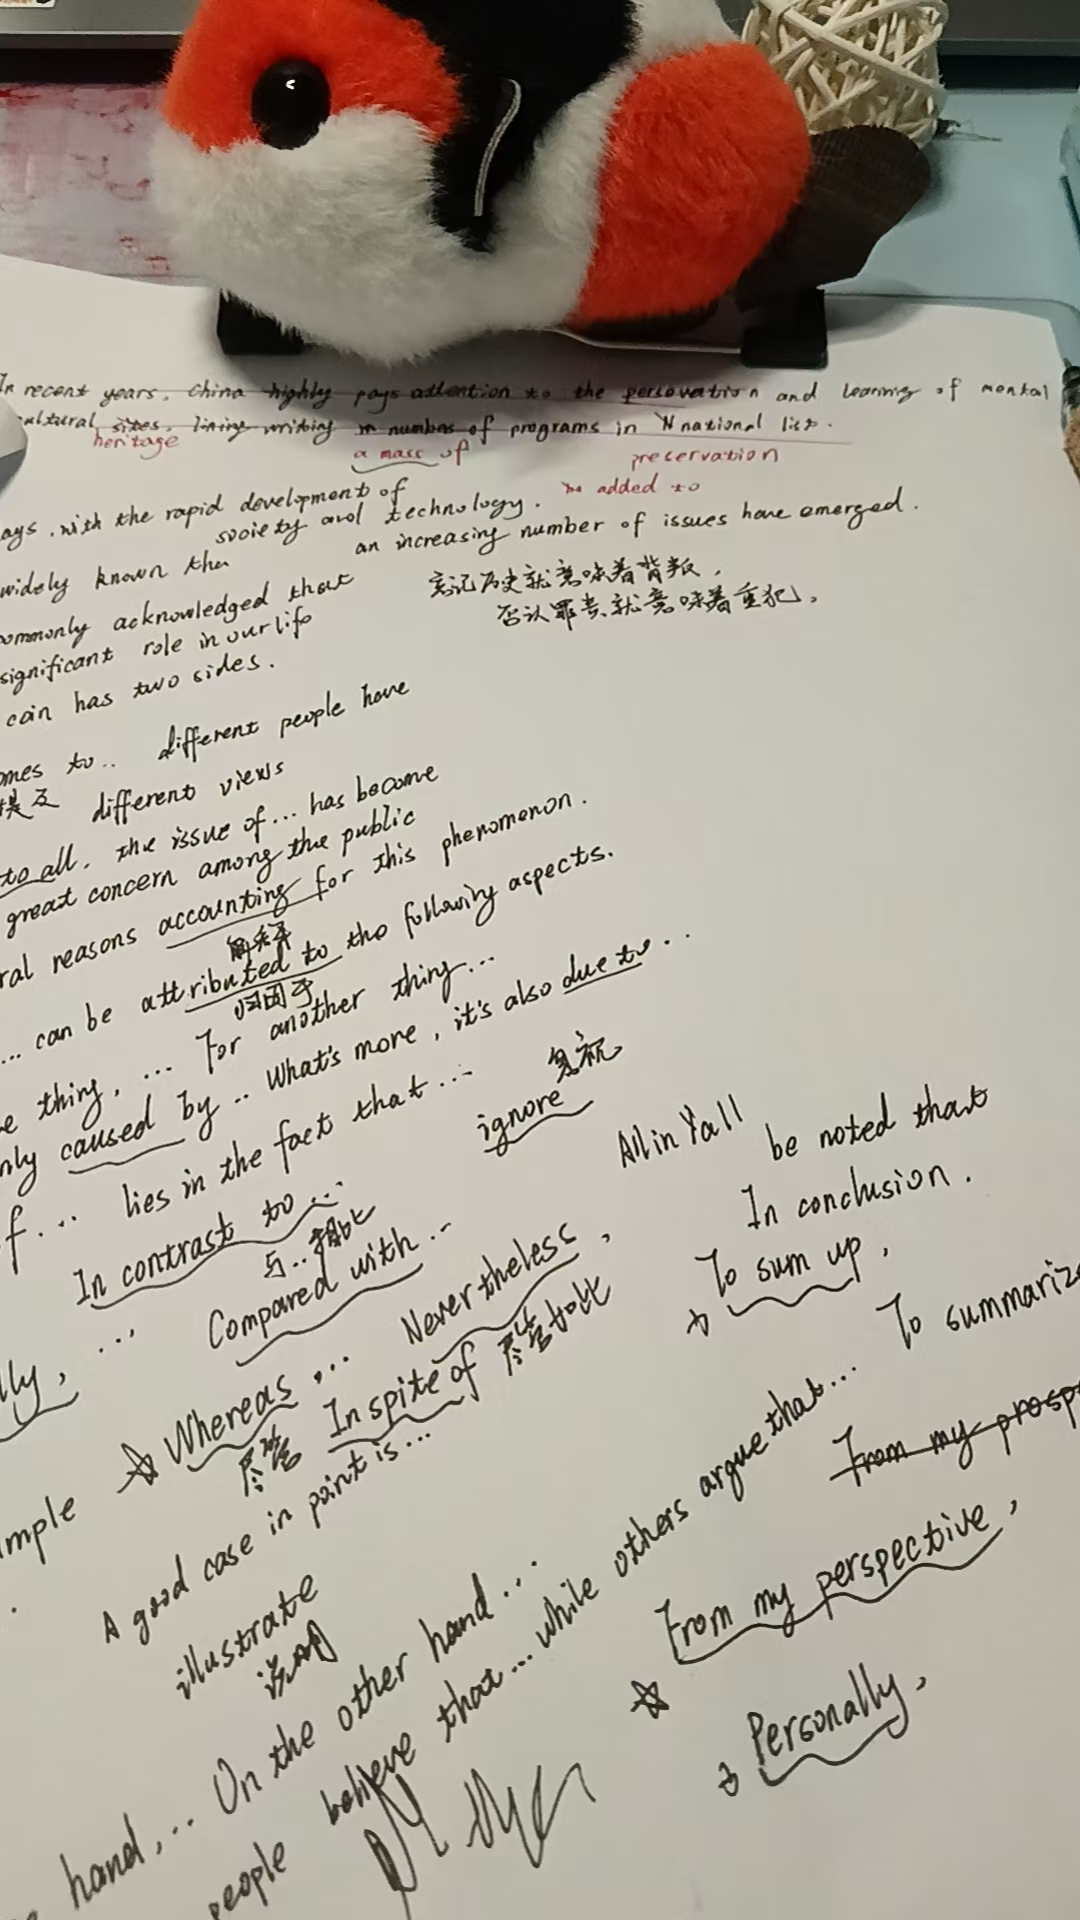 In recent years, China highly pays attention to the persovation and learning of mental
cultural sites, lining writing in numbers of programs in N national list.
heritage
a mass of
preservation
be added to
ays, with the rapid development of
society and technology.
an increasing number of issues have emerged.
widely known tha
忘记历史就意味着背叛，
否认罪责就意味着重犯。
ommonly acknowledged that
significant role in our life
coin has two sides.
omes to.. different people have
提及 different views
to all, the issue of... has become
great concern among the public
ral reasons accounting for this phenomenon.
解释
... can be attributed to the following aspects.
归因于
e thing, ... For another thing...
nly caused by.. What's more, it's also due to...
忽视
ignore
f... lies in the fact that...
All in Y all
be noted that
In contrast to...
与..相比
In conclusion.
... Compared with...
To sum up,
Nevertheless,
尽管如此
To summarize
lly,
☆ Whereas, ...
尽管
In spite of
mple
A good case in point is...
illustrate
说明
From my prosp
From my perspective,
☆
hand, ... On the other hand...
people believe that... while others argue that...
Personally,